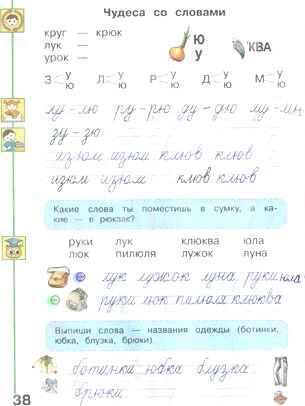 Чудеса со словами
круг — крюк
лук —
урок —
Ю
У
КВА
З У Ю Л У Ю Р У Ю Д У Ю М У Ю
лу-лю ру-рю ду-дю му-мю
зу-зю
изюм изюм клюв клюв
изюм изюм клюв клюв
Какие слова ты поместишь в сумку, а ка-
кие — в рюкзак?
руки лук клюква юла
люк пилюля лужок луна
лук лужок луна руки юла
руки люк пилюля клюква
Выпиши слова — названия одежды (ботинки,
юбка, блузка, брюки).
ботинки юбка блузка
брюки
38